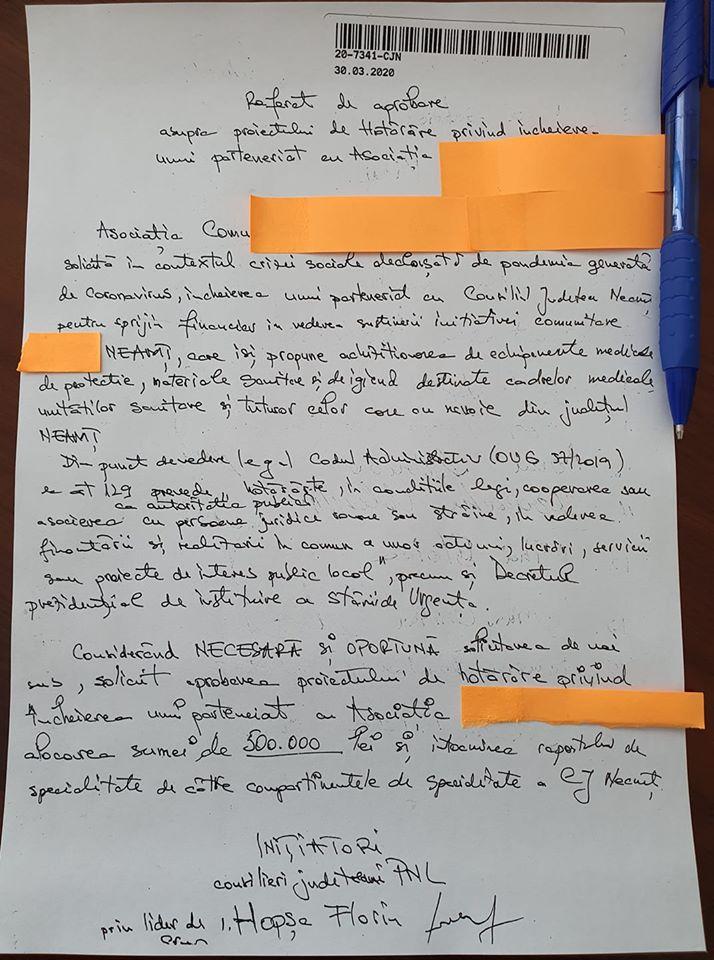 20-7341-CJN
30.03.2020
Referat de aprobare
asupra proiectului de Hotărâre privind incheierea
unui parteneriat cu Asociația
Asociația Comu
solicită in contextul crizei sociale declanșată de pandemia generată
de Coronavirus, incheierea unui parteneriat cu Consiliul Județean Neamț
pentru sprijin financiar in vederea susținerii initiativei comunitare
NEAMȚ, care iși propune achiziționarea de echipamente medicale
de protectie, materiale sanitare și de igienă destinate cadrelor medicale,
unitatilor sanitare și tuturor celor care au nevoie din județul
NEAMȚ
Din punct de vedere legal Codul Administrativ (OUG 57/2019)
art 129 prevede, hotărăște, în condițiile legi, cooperarea sau
ca autoritatea publică
asocierea cu persoane juridice romane sau străine, în vederea
finantării și realizării în comun a unor actiuni, lucrări, servicii
sau proiecte de interes public local", precum și Decretul
prezidențial de instituire a Stării de Urgența.
Considerând NECESARĂ și OPORTUNĂ solicitarea de mai
sus, solicit aprobarea proiectului de hotărâre privind
încheierea unui parteneiat cu Asociația
alocarea sumei de 500.000 lei și întocmirea raportului de
specialitate de către compartimentele de specialitate a CJ Neamț
INIȚIATORI
consilieri județeni PNL
prin lider de 1. Hopșa Florin
grup